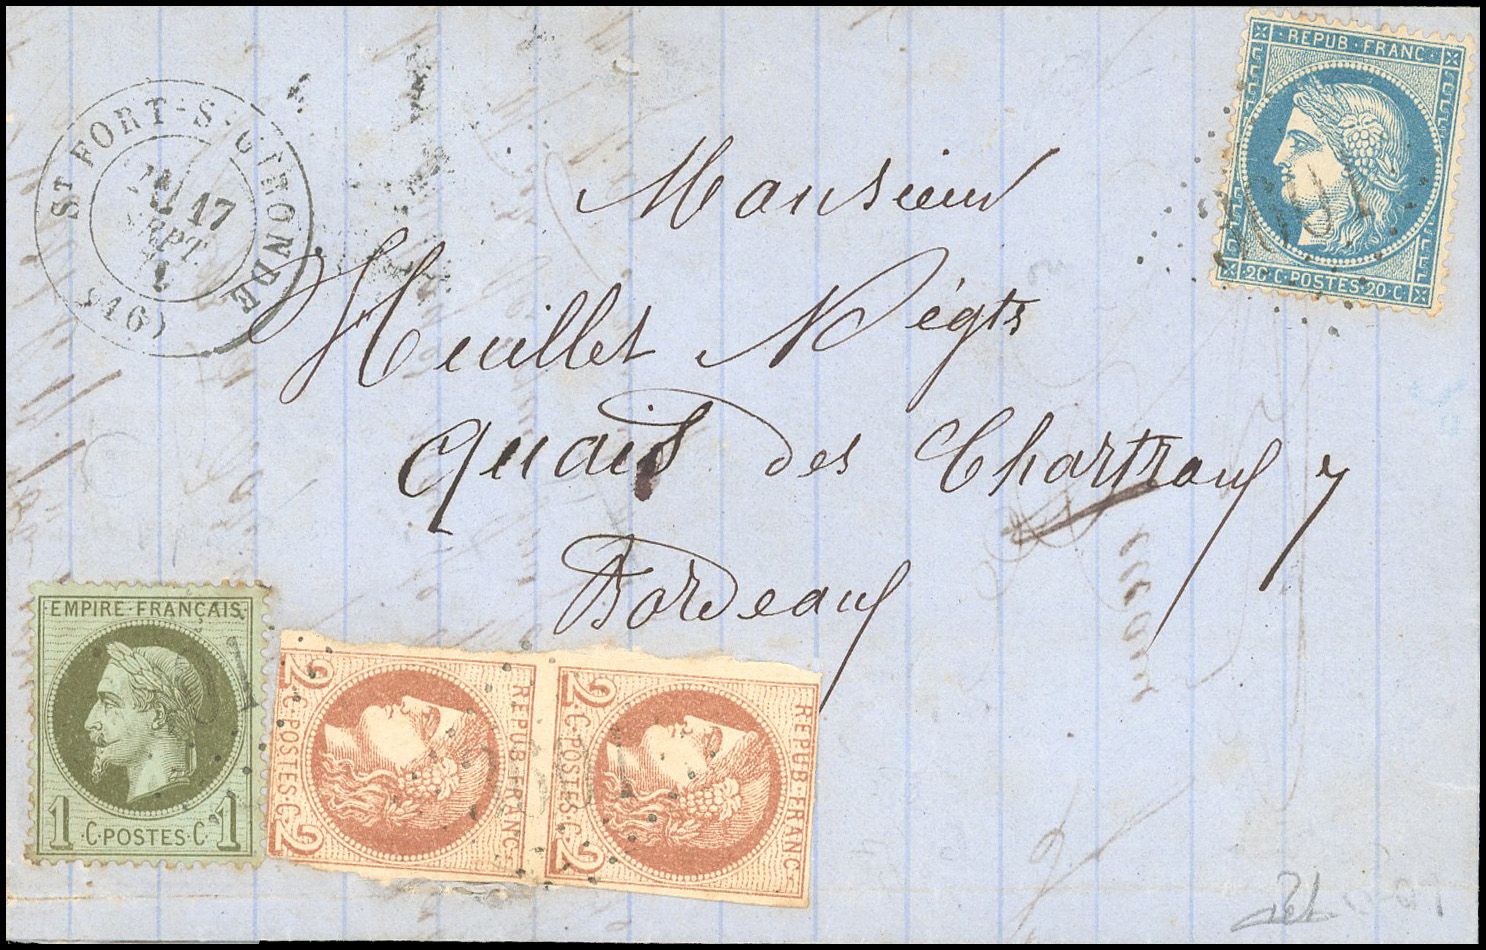 ST FORT-S-GIRONDE
17
SEPT.
71
(16)
REPUB·FRANC·
20·C·POSTES·20·C
3691
Monsieur
Heuillet Négts
Quais des Chartrons 7
Bordeaux
EMPIRE·FRANÇAIS
1 ·C·POSTES·C· 1
2·C·POSTES·C·2
REPUB·FRANC·
2·C·POSTES·C·2
REPUB·FRANC·